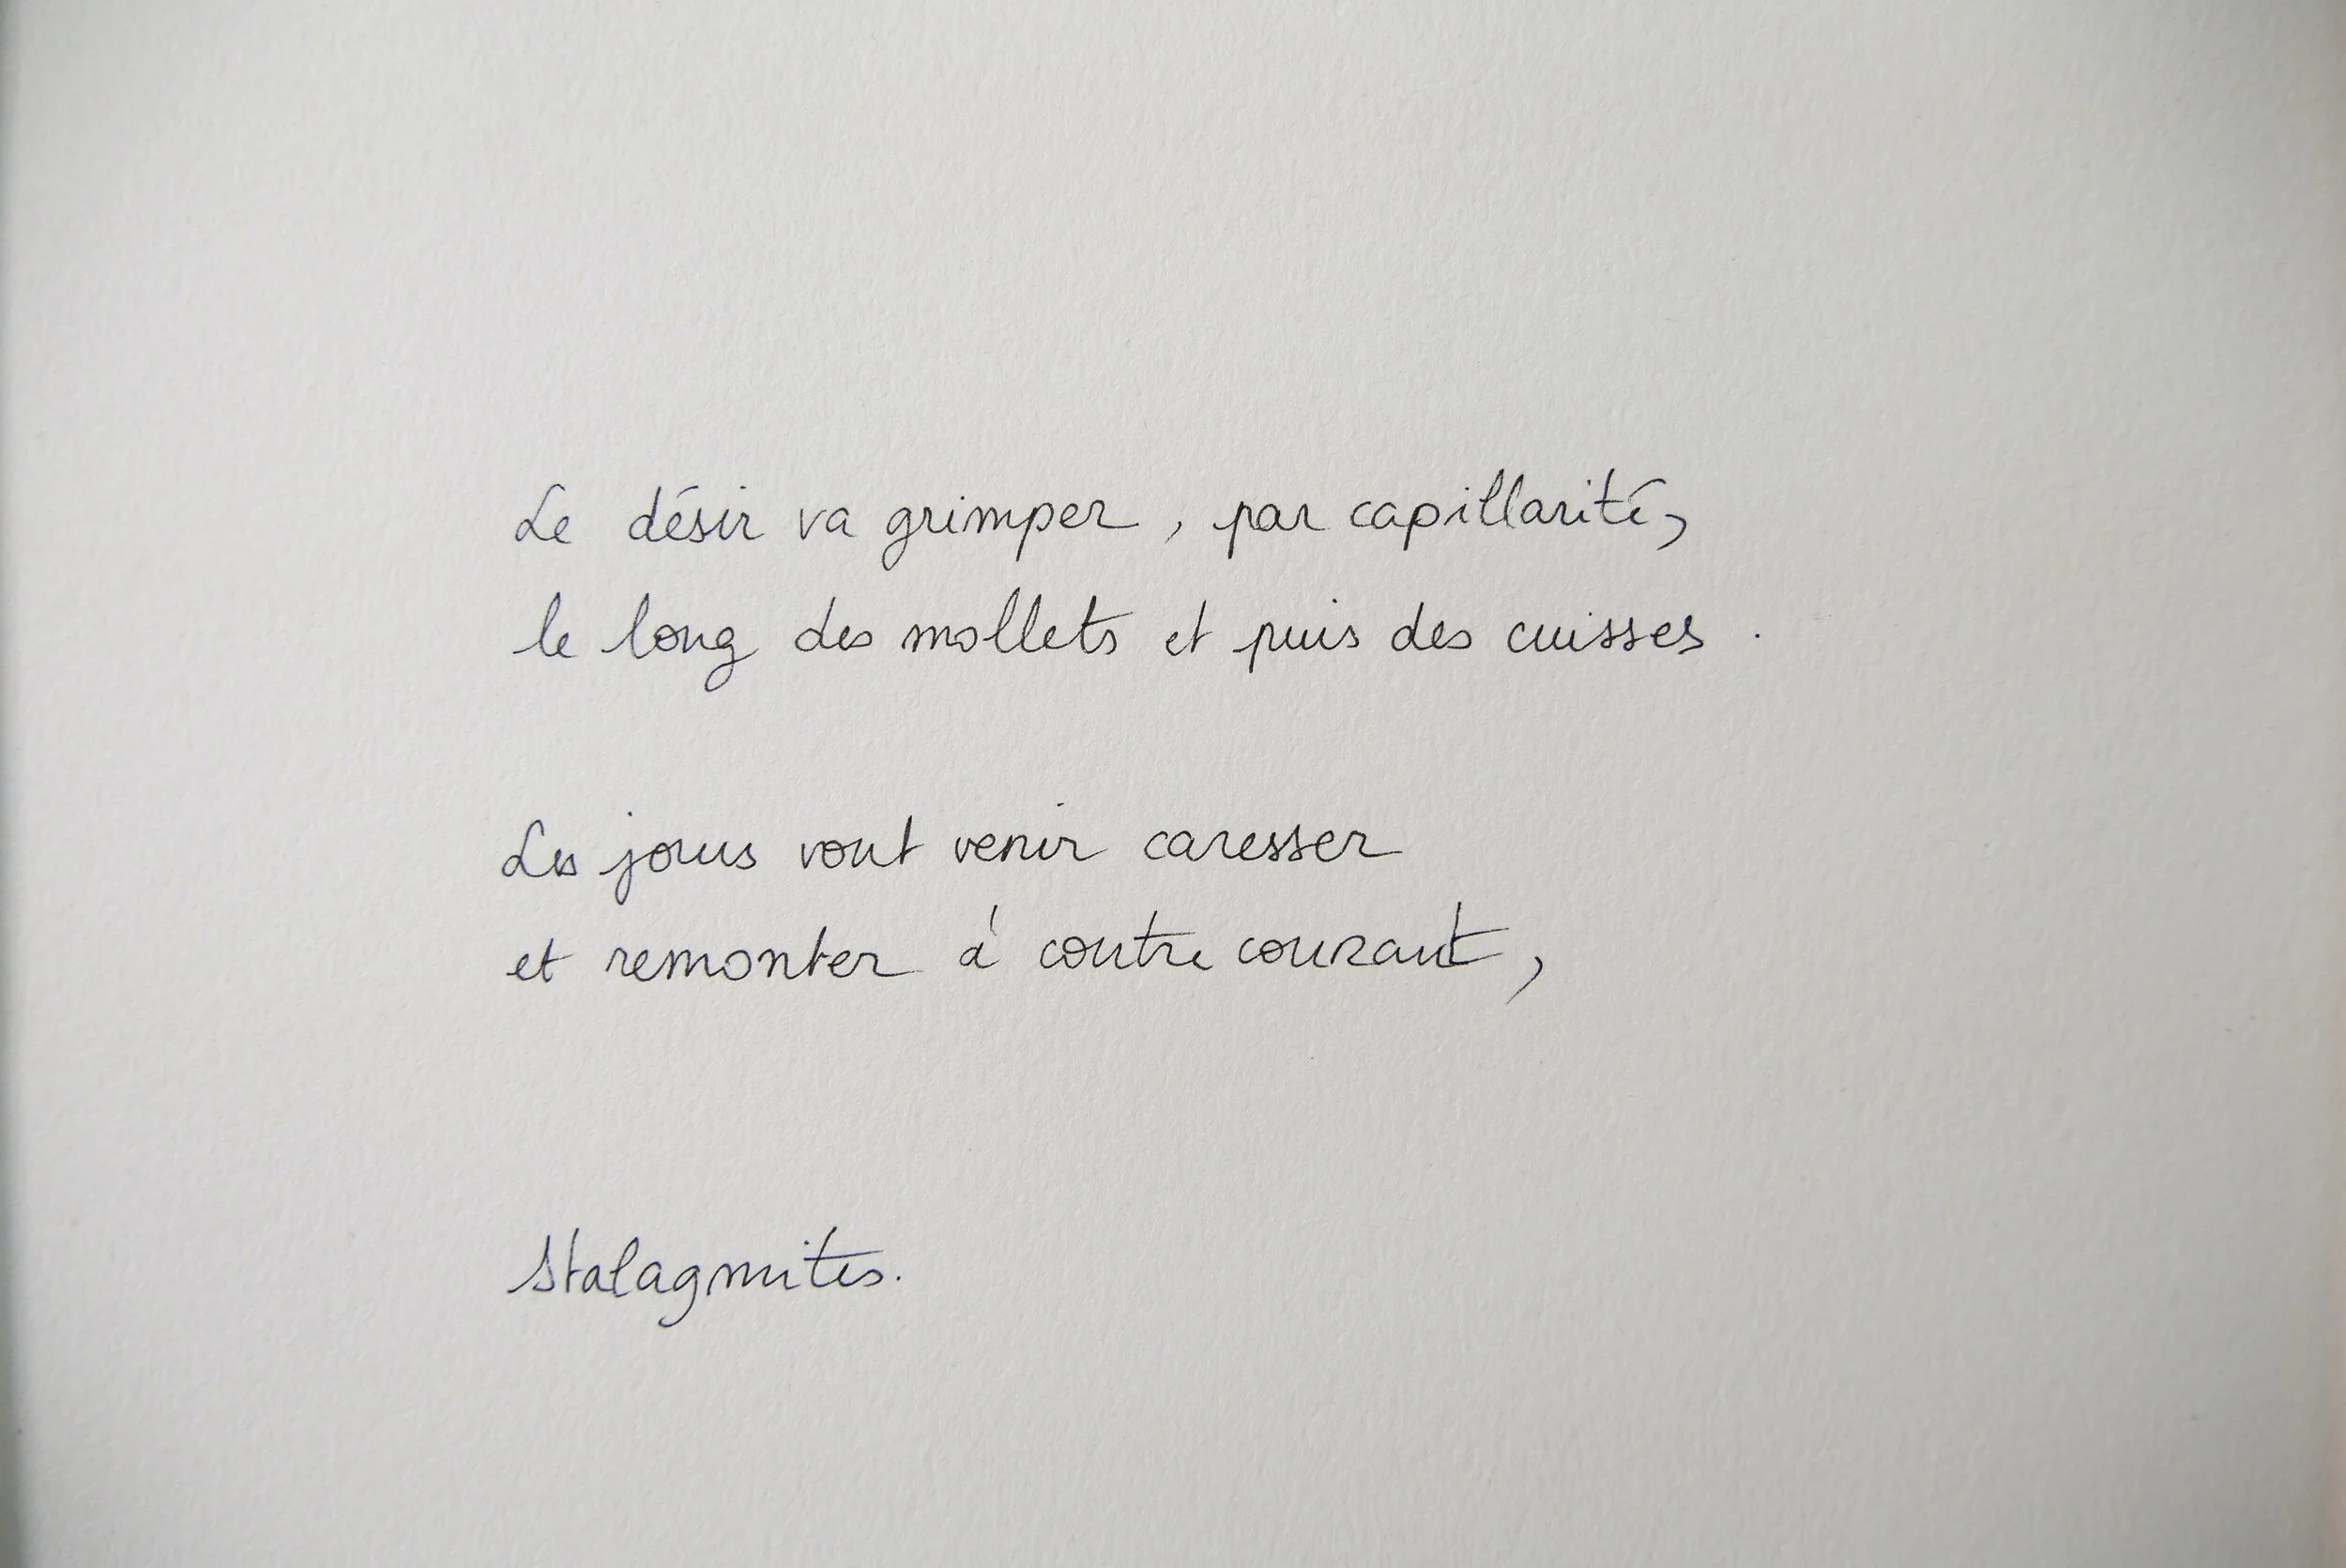 Le désir va grimper, par capillarité,
le long des mollets et puis des cuisses.
Les jours vont venir caresser
et remonter à contre courant,
Stalagmites.